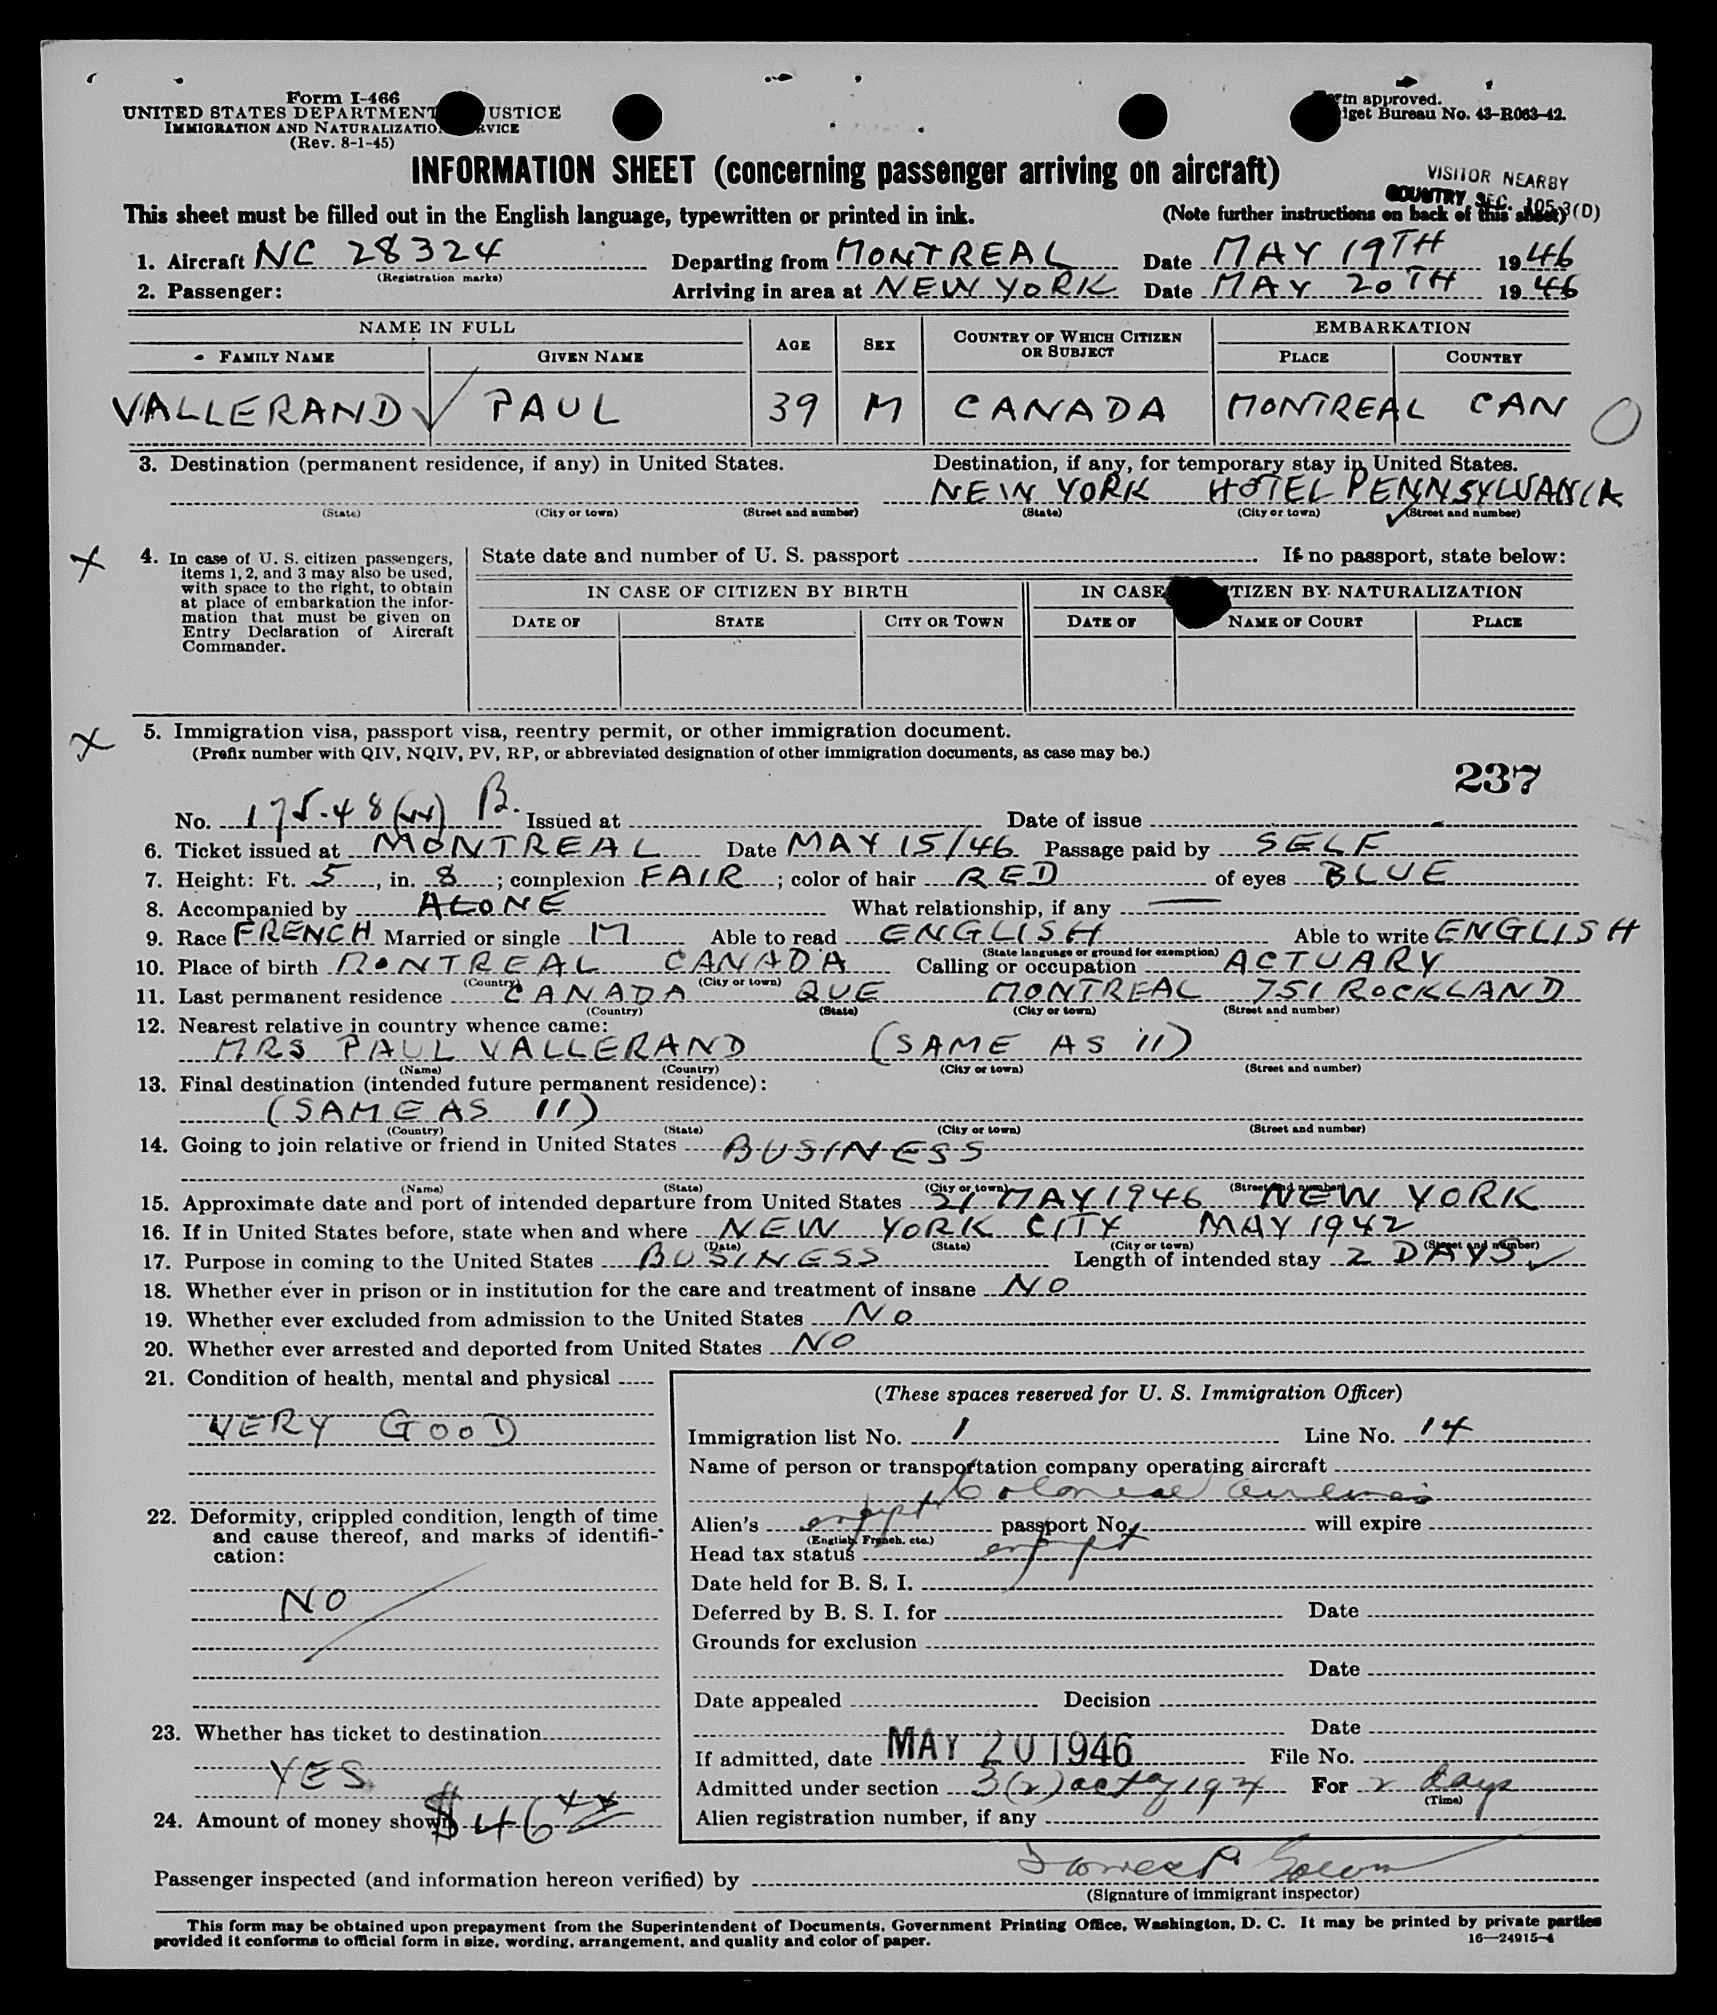 Form I-466
UNITED STATES DEPARTMENT USTICE
IMMIGRATION AND NATURALIZATION RVICE
(Rev. 8-1-45)
rm approved.
get Bureau No. 43-R063-42.
INFORMATION SHEET (concerning passenger arriving on aircraft)
VISITOR NEARBY
COUNTRY SEC. 105.3(D)
This sheet must be filled out in the English language, typewritten or printed in ink. (Note further instructions on back of this sheet)
1. Aircraft NC 28324 Departing from MONTREAL Date MAY 19TH 1946
(Registration marks)
2. Passenger: Arriving in area at NEW YORK Date MAY 20TH 1946
NAME IN FULL AGE SEX COUNTRY OF WHICH CITIZEN OR SUBJECT EMBARKATION
FAMILY NAME GIVEN NAME PLACE COUNTRY
VALLERAND PAUL 39 M CANADA MONTREAL CAN
3. Destination (permanent residence, if any) in United States. Destination, if any, for temporary stay in United States.
NEW YORK HOTEL PENNSYLVANIA
(State) (City or town) (Street and number) (State) (City or town) (Street and number)
X 4. In case of U. S. citizen passengers, items 1, 2, and 3 may also be used, with space to the right, to obtain at place of embarkation the information that must be given on Entry Declaration of Aircraft Commander.
State date and number of U. S. passport If no passport, state below:
IN CASE OF CITIZEN BY BIRTH IN CASE TIZEN BY NATURALIZATION
DATE OF STATE CITY OR TOWN DATE OF NAME OF COURT PLACE
X 5. Immigration visa, passport visa, reentry permit, or other immigration document.
(Prefix number with QIV, NQIV, PV, RP, or abbreviated designation of other immigration documents, as case may be.)
237
No. 175.48 B. Issued at Date of issue
6. Ticket issued at MONTREAL Date MAY 15/46 Passage paid by SELF
7. Height: Ft. 5, in. 8; complexion FAIR; color of hair RED of eyes BLUE
8. Accompanied by ALONE What relationship, if any —
9. Race FRENCH Married or single M Able to read ENGLISH Able to write ENGLISH
(State language or ground for exemption)
10. Place of birth MONTREAL CANADA Calling or occupation ACTUARY
(Country) (City or town)
11. Last permanent residence CANADA QUE MONTREAL 751 ROCKLAND
(Country) (State) (City or town) (Street and number)
12. Nearest relative in country whence came:
MRS PAUL VALLERAND (SAME AS 11)
(Name) (Country) (City or town) (Street and number)
13. Final destination (intended future permanent residence):
(SAME AS 11)
(Country) (State) (City or town) (Street and number)
14. Going to join relative or friend in United States BUSINESS
(Name) (State) (City or town) (Street and number)
15. Approximate date and port of intended departure from United States 21 MAY 1946 NEW YORK
16. If in United States before, state when and where NEW YORK CITY MAY 1942
(Date) (State) (City or town) (Street and number)
17. Purpose in coming to the United States BUSINESS Length of intended stay 2 DAYS
18. Whether ever in prison or in institution for the care and treatment of insane NO
19. Whether ever excluded from admission to the United States NO
20. Whether ever arrested and deported from United States NO
21. Condition of health, mental and physical
VERY GOOD
22. Deformity, crippled condition, length of time and cause thereof, and marks of identification:
NO
23. Whether has ticket to destination
YES
24. Amount of money shown $46 xx
(These spaces reserved for U. S. Immigration Officer)
Immigration list No. 1 Line No. 14
Name of person or transportation company operating aircraft
Colonial Airlines
Alien's exempt passport No. will expire
(English, French, etc.)
Head tax status exempt
Date held for B. S. I.
Deferred by B. S. I. for Date
Grounds for exclusion
Date
Date appealed Decision
Date
If admitted, date MAY 20 1946 File No.
Admitted under section 3(2) act of 1924 For 2 days
(Time)
Alien registration number, if any
Passenger inspected (and information hereon verified) by
(Signature of immigrant inspector)
This form may be obtained upon prepayment from the Superintendent of Documents, Government Printing Office, Washington, D. C. It may be printed by private parties
provided it conforms to official form in size, wording, arrangement, and quality and color of paper.
16—24915-4